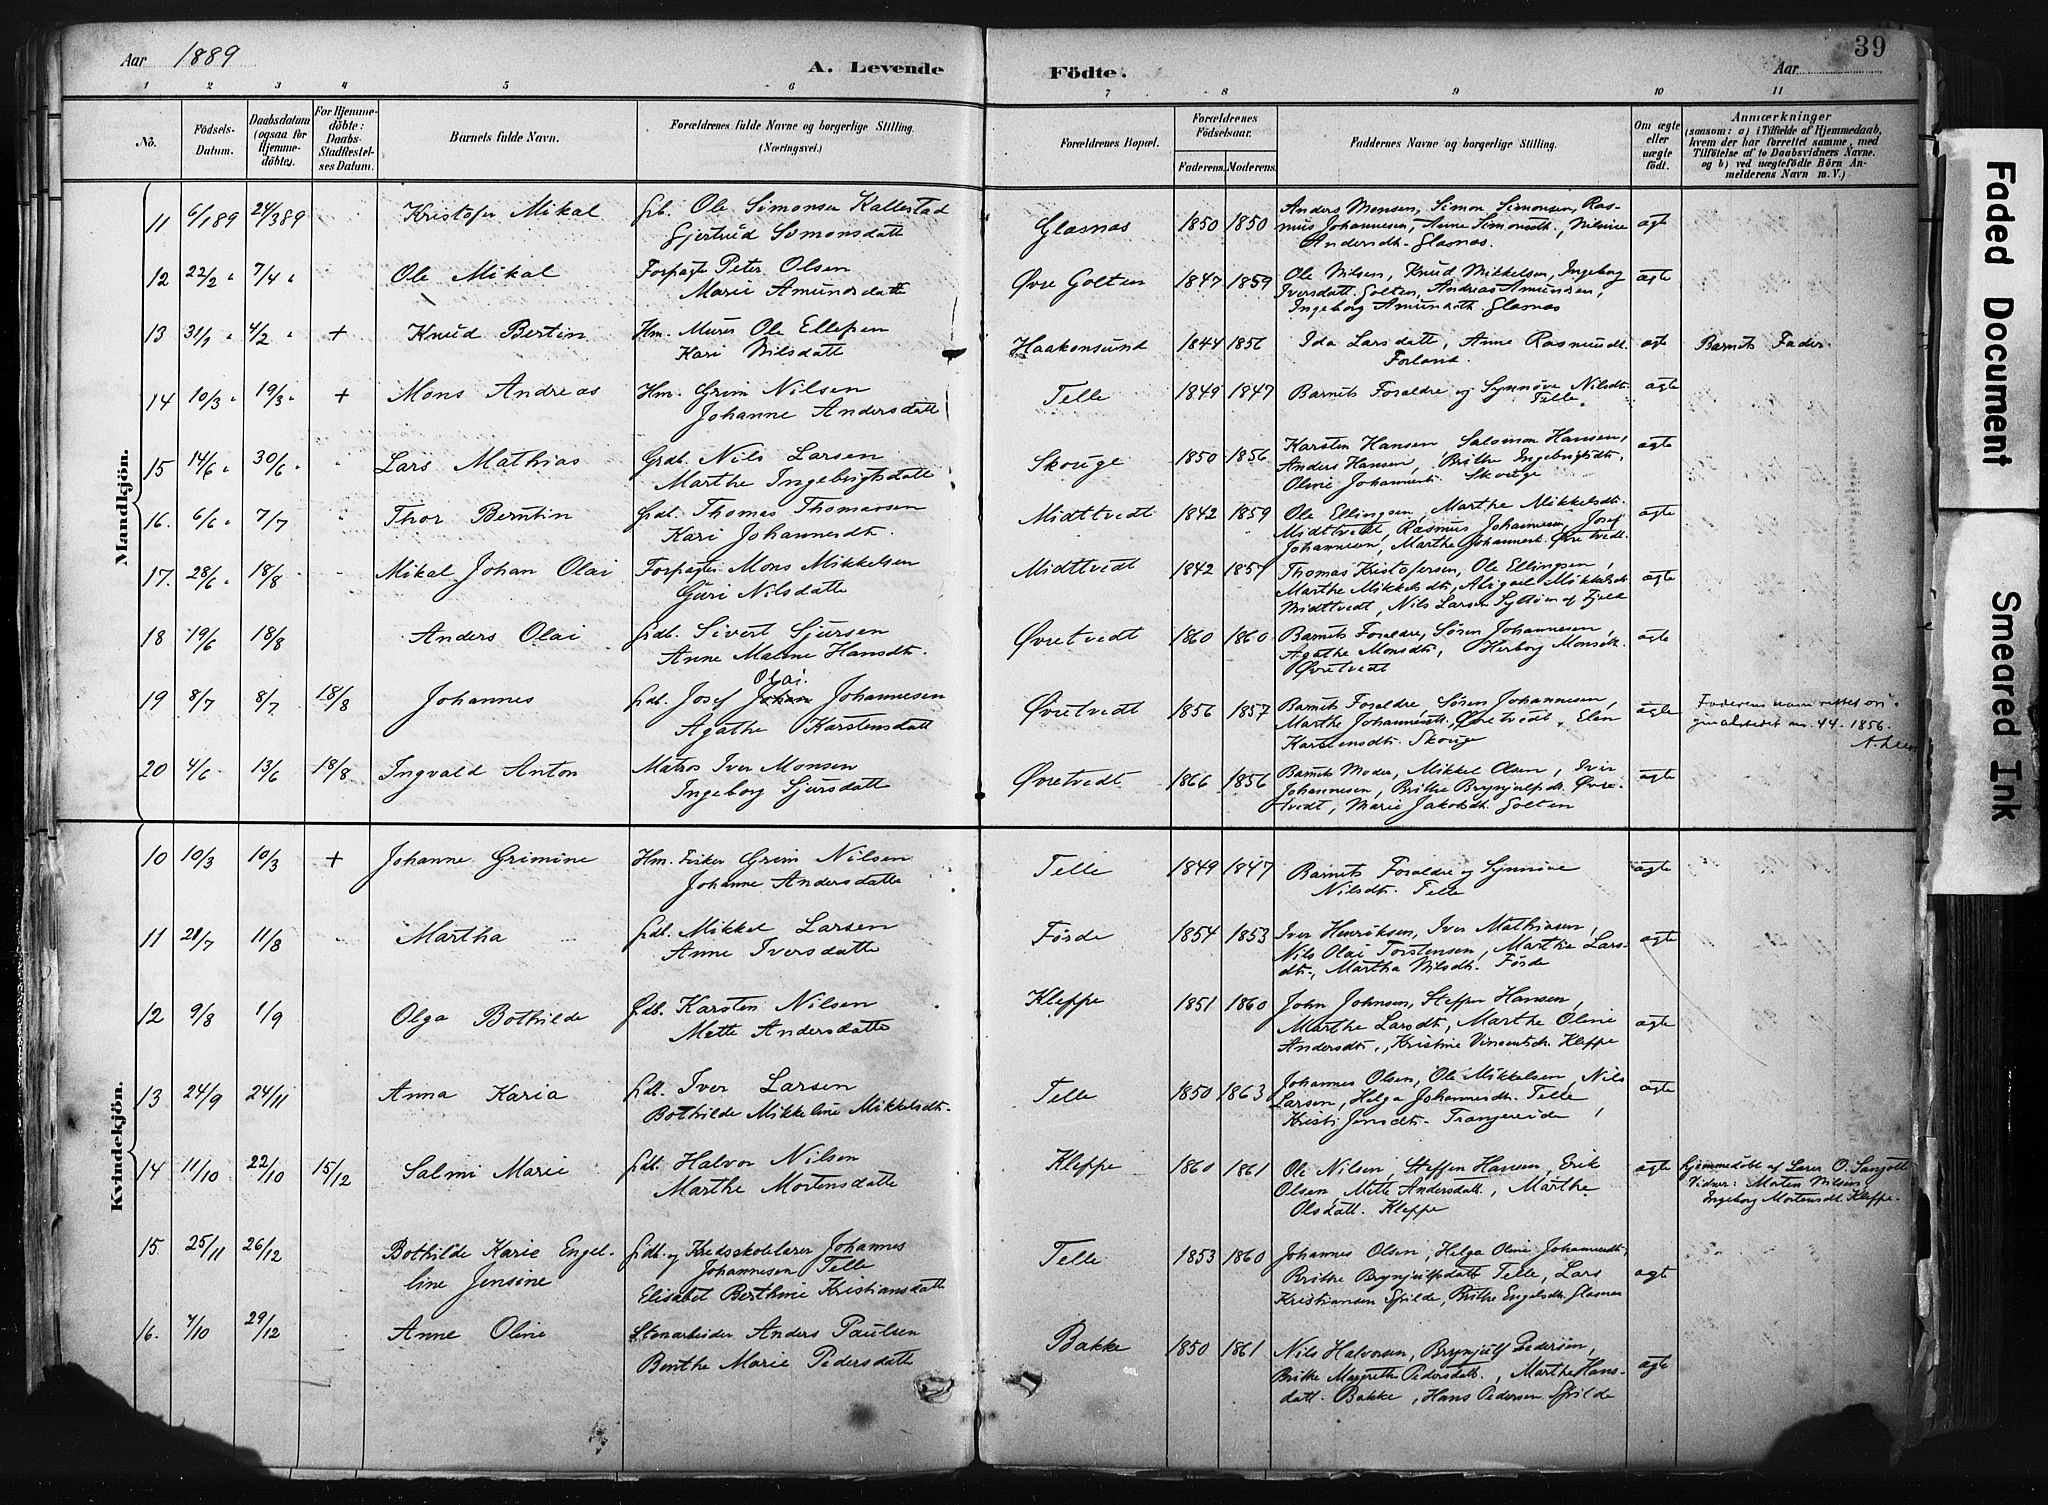 Aar 1889
A. Levende Födte.
Aar
39
1 2 3 4 5 6 7 8 9 10 11
No.
Födsels-Datum.
Daabsdatum (ogsaa for Hjemmedöbte).
For Hjemmedöbte: Daabs-Stadfæstelses Datum.
Barnets fulde Navn.
Forældrenes fulde Navne og borgerlige Stilling. (Næringsvei.)
Forældrenes Bopæl.
Forældrenes Födselsaar.
Faderens. Moderens.
Faddernes Navne og borgerlige Stilling.
Om ægte eller uægte födt.
Anmærkninger
(saasom: a) i Tilfælde af Hjemmedaab, hvem der har forrettet samme, med Tilföielse af to Daabsvidners Navne. og b) ved uægtefödte Börn Anmelderens Navn m. V.)
Mandkjön.
11 6/1 89 24/3 89 Kristofer Mikal Grb. Ole Simonsen Kallestad Glasnas 1850 1850 Anders Monsen, Simon Simonsen, Ras-
Gjertrud Simonsdatt mus Johannesen, Anne Simonsdt., Nilsine ægte
Andersdt. Glasnas.
12 22/2 " 7/4 " Ole Mikal Forpagter Peter Olsen Øvre Golten 1847 1859 Ole Nilsen, Knud Mikkelsen, Ingeborg ægte
Marie Amundsdatt Iversdatt. Golten, Andreas Amundsen,
Ingeborg Amundsdt. Glasnas
13 31/1 " 4/2 " + Knud Bertin Hm. Murer Ole Ellefsen Haakonsund 1844 1856 Ida Larsdatt, Anne Rasmusdt. ægt Barnets Fader
Kari Nilsdatt Forland.
14 10/3 " 19/3 " + Mons Andreas Hm. Grim Nilsen Telle 1849 1847 Barnets Forældre og Synnøve Nilsdt. ægte
Johanne Andersdatt Telle.
15 14/6 " 30/6 " " Lars Mathias Grdb. Nils Larsen Skouge 1850 1856 Karsten Hansen, Salomon Hansen, ægte
Marthe Ingebrigtsdatt Anders Hansen, Brithe Ingebrigtsdt.
Oline Johannesdt. Skouge
16. 6/6 " 7/7 " Thor Berntin Grdb. Thomas Thomassen Midttvedt 1842 1859 Ole Ellingsen, Marthe Mikkelsdt. ægte
Kari Johannesdt. Midttvedt, Rasmus Johannesen, Josef
Johannesen, Marthe Johannesdt. Øvretvedt.
17. 28/6 " 18/8 Mikal Johan Olai Forpagter Mons Mikkelsen Midttvedt 1842 1857 Thomas Kristofersen, Ole Ellingsen, ægte
Guri Nilsdatte Marthe Mikkelsdt, Abigael Mikkelsdt
Midttvedt, Nils Larsen Syltøen af Fjeld
18 19/6 18/8 Anders Olai Grdb. Sivert Sjursen Øvretvedt 1860 1860 Barnets Forældre, Søren Johannesen, ægte
Anne Malene Hansdt. Agathe Monsdt, Herborg Monsdt.
Øvretvedt
19 8/7 8/7 18/8 Johannes Gdb. Josef Johan Olai. Johannesen Øvretvedt 1856 1857 Barnets Forældre, Søren Johannesen, ægte Faderens navn rettet ori-
Agathe Karstensdatt Marthe Johannesdt. Øvretvedt, Elen ginalstedet nr. 44. 1856.
Karstensdt. Skouge
20 4/6 13/6 18/8 Ingvald Anton Matros Iver Monsen Øvretvedt 1866 1856 Barnets Moder, Mikkel Olsen, Iver ægte
Ingeborg Sjursdatt Johannesen, Brithe Brynjulfsdt. Øvre-
tvedt, Marie Jakobsdt. Golten
Kvindekjön.
10 10/3 10/3 + Johanne Grimine Hm. Fisker Grim Nilsen Telle 1849 1847 Barnets Forældre og Synnøve ægte
Johanne Andersdatte Nilsdt. Telle
11 21/7 11/8 " Martha Gdb. Mikkel Larsen Førde 1854 1853 Iver Henriksen, Iver Mathiasen, ægte
Anne Iversdatte Nils Olai Torstensen, Marthe Lars-
dt., Martha Nilsdt. Førde
12 9/8 1/9 Olga Bothilde Gdb. Karsten Nilsen Kleppe 1851 1860 John Johnsen, Steffen Hansen,
Mette Andersdatte Marthe Larsdt, Marthe Oline ægte
Andersdt., Kristine Vincentsdt. Kleppe
13 24/9 24/11 Anna Karia Gdb. Iver Larsen Telle 1850 1863 Johannes Olsen, Ole Mikkelsen, Nils ægte
Bothilde Mikkeline Mikkelsdt. Larsen, Helga Johannesdt. Telle
Kristi Jensdt. Trangereide
14 11/10 22/10 15/12 Salmi Marie Gdb. Halvor Nilsen Kleppe 1860 1861 Ole Nilsen, Steffen Hansen, Erik ægte Hjemmedøbt af Lærer O. Sangolt
Marthe Mortensdatte Olsen, Mette Andersdatt., Marthe Vidner: Morten Nilsen,
Olsdatt. Kleppe Ingeborg Mortensdt. Kleppe.
15 25/11 26/12 Bothilde Karie Engel- Gdb. og Kredsskolelærer Johannes Telle 1853 1860 Johannes Olsen, Helga Oline Johannesdt,
line Jensine Johannesen Telle Brithe Brynjulfsdatt Telle, Lars ægte
Elisabet Berthine Kristiansdatt Kristiansen Spilde, Brithe Engelsdt. Glasnes
16. 7/10 29/12 Anne Oline Stenarbeider Anders Paulsen Bakke 1850 1861 Nils Halvorsen, Brynjulf Pedersen,
Berthe Marie Pedersdatt Brithe Margrethe Pedersdatt., Marthe Hans- ægte
datt. Bakke, Hans Pedersen Spilde
Faded Document
Smeared Ink